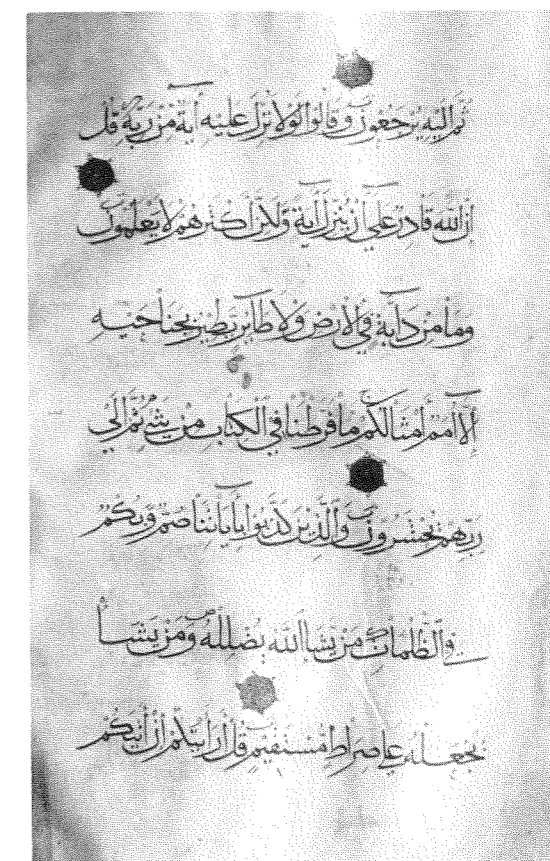 ثُمَّ إِلَيْهِ يُرْجَعُونَ وَقَالُوا لَوْلَا نُزِّلَ عَلَيْهِ آيَةٌ مِنْ رَبِّهِ قُلْ
إِنَّ اللَّهَ قَادِرٌ عَلَى أَنْ يُنَزِّلَ آيَةً وَلَكِنَّ أَكْثَرَهُمْ لَا يَعْلَمُونَ
وَمَا مِنْ دَابَّةٍ فِي الْأَرْضِ وَلَا طَائِرٍ يَطِيرُ بِجَنَاحَيْهِ
إِلَّا أُمَمٌ أَمْثَالُكُمْ مَا فَرَّطْنَا فِي الْكِتَابِ مِنْ شَيْءٍ ثُمَّ إِلَى
رَبِّهِمْ يُحْشَرُونَ وَالَّذِينَ كَذَّبُوا بِآيَاتِنَا صُمٌّ وَبُكْمٌ
فِي الظُّلُمَاتِ مَنْ يَشَأِ اللَّهُ يُضْلِلْهُ وَمَنْ يَشَأْ
يَجْعَلْهُ عَلَى صِرَاطٍ مُسْتَقِيمٍ قُلْ أَرَأَيْتَكُمْ إِنْ أَتَاكُمْ